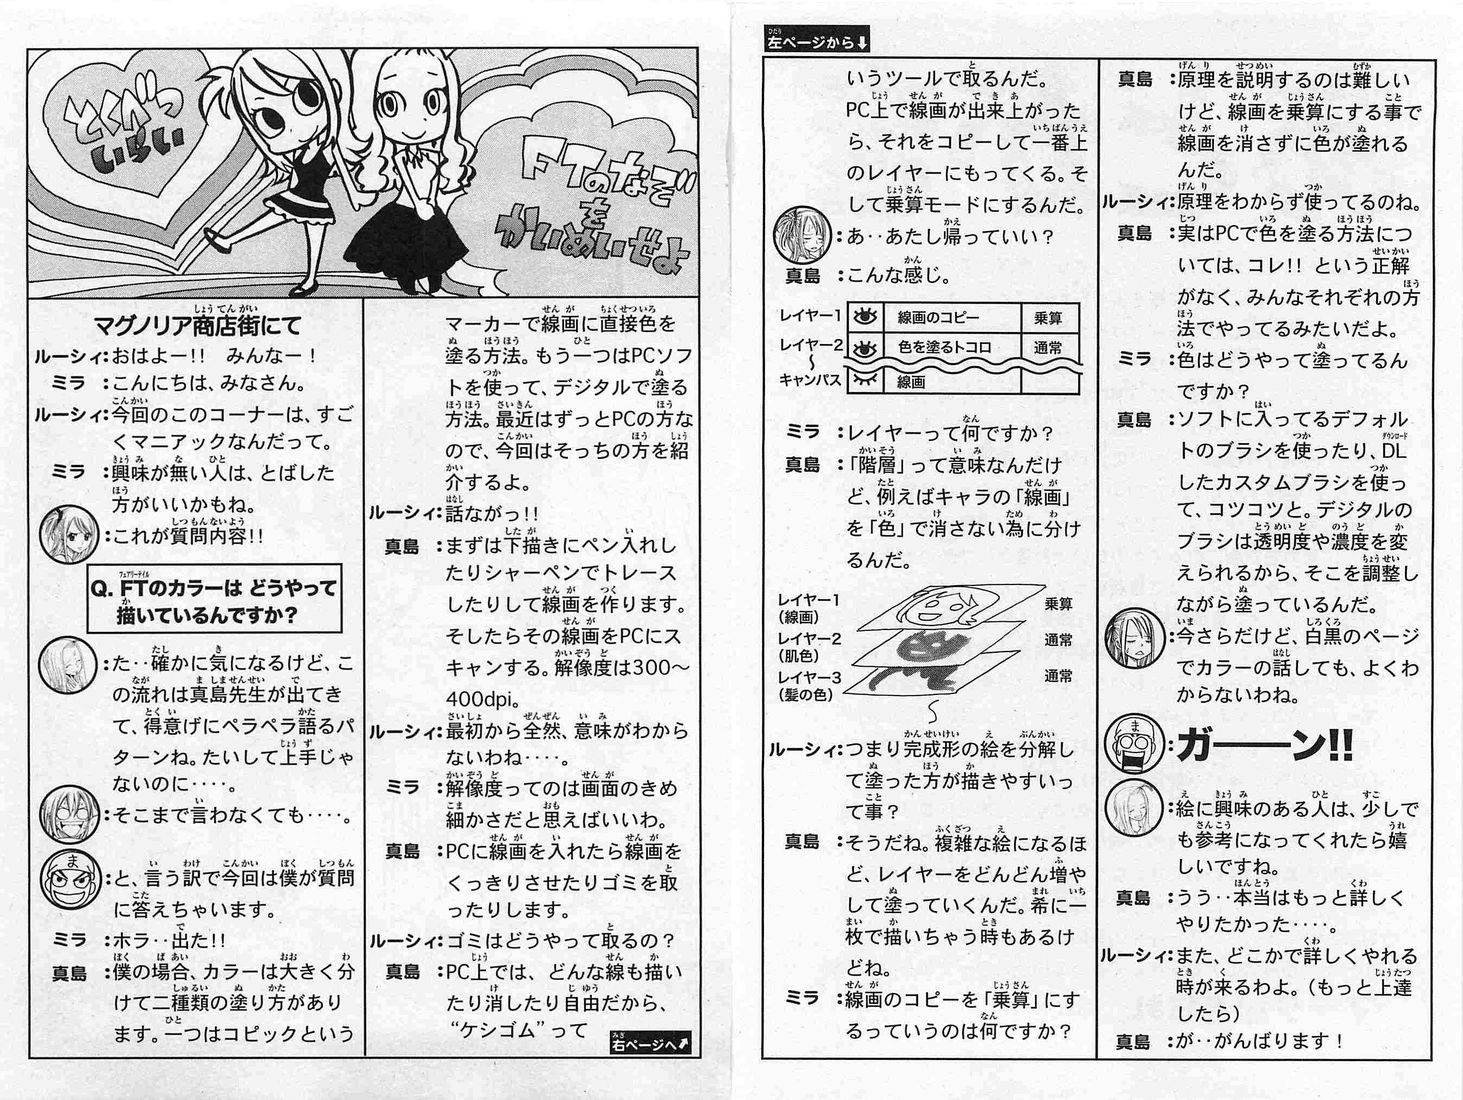 とくべつ
いらい
FTのなぞ
を
かいめいせよ
マグノリア商店街にて
ルーシィ:おはよー!! みんなー!
ミラ:こんにちは、みなさん。
ルーシィ:今回のこのコーナーは、すご
くマニアックなんだって。
ミラ:興味が無い人は、とばした
方がいいかもね。
:これが質問内容!!
Q. FTのカラーは どうやって
描いているんですか?
:た‥確かに気になるけど、こ
の流れは真島先生が出てき
て、得意げにペラペラ語るパ
ターンね。たいして上手じゃ
ないのに‥‥。
:そこまで言わなくても‥‥。
:と、言う訳で今回は僕が質問
に答えちゃいます。
ミラ:ホラ‥出た!!
真島:僕の場合、カラーは大きく分
けて二種類の塗り方があり
ます。一つはコピックという
マーカーで線画に直接色を
塗る方法。もう一つはPCソフ
トを使って、デジタルで塗る
方法。最近はずっとPCの方な
ので、今回はそっちの方を紹
介するよ。
ルーシィ:話ながっ!!
真島:まずは下描きにペン入れし
たりシャーペンでトレース
したりして線画を作ります。
そしたらその線画をPCにス
キャンする。解像度は300〜
400dpi。
ルーシィ:最初から全然、意味がわから
ないわね‥‥。
ミラ:解像度ってのは画面のきめ
細かさだと思えばいいわ。
真島:PCに線画を入れたら線画を
くっきりさせたりゴミを取
ったりします。
ルーシィ:ゴミはどうやって取るの?
真島:PC上では、どんな線も描い
たり消したり自由だから、
“ケシゴム”って
右ページへ↗
左ページから↓
いうツールで取るんだ。
PC上で線画が出来上がった
ら、それをコピーして一番上
のレイヤーにもってくる。そ
して乗算モードにするんだ。
:あ‥あたし帰っていい?
真島:こんな感じ。
レイヤー1 線画のコピー 乗算
レイヤー2 色を塗るトコロ 通常
〜
キャンパス 線画
ミラ:レイヤーって何ですか?
真島:「階層」って意味なんだけ
ど、例えばキャラの「線画」
を「色」で消さない為に分け
るんだ。
レイヤー1 乗算
(線画)
レイヤー2 通常
(肌色)
レイヤー3 通常
(髪の色)
ルーシィ:つまり完成形の絵を分解し
て塗った方が描きやすいっ
て事?
真島:そうだね。複雑な絵になるほ
ど、レイヤーをどんどん増や
して塗っていくんだ。希に一
枚で描いちゃう時もあるけ
どね。
ミラ:線画のコピーを「乗算」にす
るっていうのは何ですか?
真島:原理を説明するのは難しい
けど、線画を乗算にする事で
線画を消さずに色が塗れる
んだ。
ルーシィ:原理をわからず使ってるのね。
真島:実はPCで色を塗る方法につ
いては、コレ!! という正解
がなく、みんなそれぞれの方
法でやってるみたいだよ。
ミラ:色はどうやって塗ってるん
ですか?
真島:ソフトに入ってるデフォル
トのブラシを使ったり、DL
したカスタムブラシを使っ
て、コツコツと。デジタルの
ブラシは透明度や濃度を変
えられるから、そこを調整し
ながら塗っているんだ。
:今さらだけど、白黒のページ
でカラーの話しても、よくわ
からないわね。
:ガーーン!!
:絵に興味のある人は、少しで
も参考になってくれたら嬉
しいですね。
真島:うう‥本当はもっと詳しく
やりたかった‥‥。
ルーシィ:また、どこかで詳しくやれる
時が来るわよ。(もっと上達
したら)
真島:が‥がんばります!